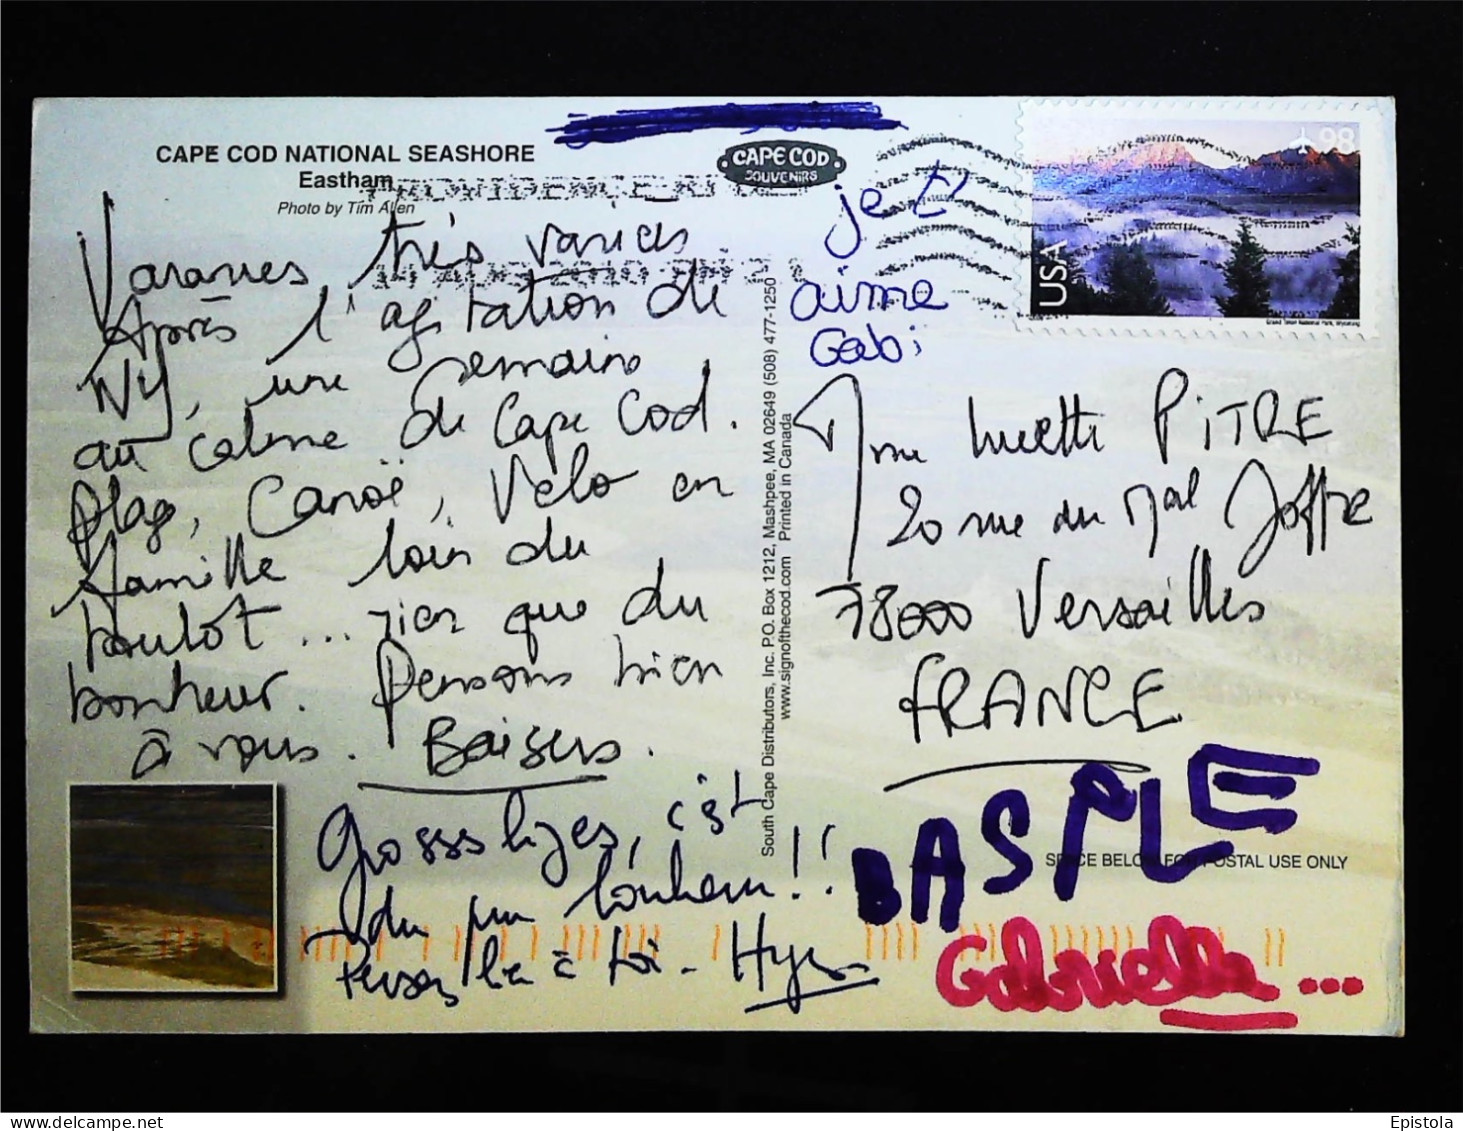 CAPE COD NATIONAL SEASHORE
Eastham
Photo by Tim Allen
CAPE COD
SOUVENIRS
PROVIDENCE RI
98
USA
Grand Teton National Park, Wyoming
je t'
aime
Gabi
très variées
Après l'agitation de
NY, une semaine
au calme de Cape Cod.
plage, Canoë, Vélo en
famille loin du
boulot ... rien que du
bonheur. Pensons bien
à vous. Baisers.
Grosssbizes, c'est
du pur bonheur !!
à toi -
South Cape Distributors, Inc. P.O. Box 1212, Mashpee, MA 02649 (508) 477-1250
www.signofthecod.com Printed in Canada
Mme Lucette PITRE
20 rue du Mal Joffre
78000 Versailles
FRANCE
SPACE BELOW FOR POSTAL USE ONLY
BASILE
Gabrielle ...
Epistola